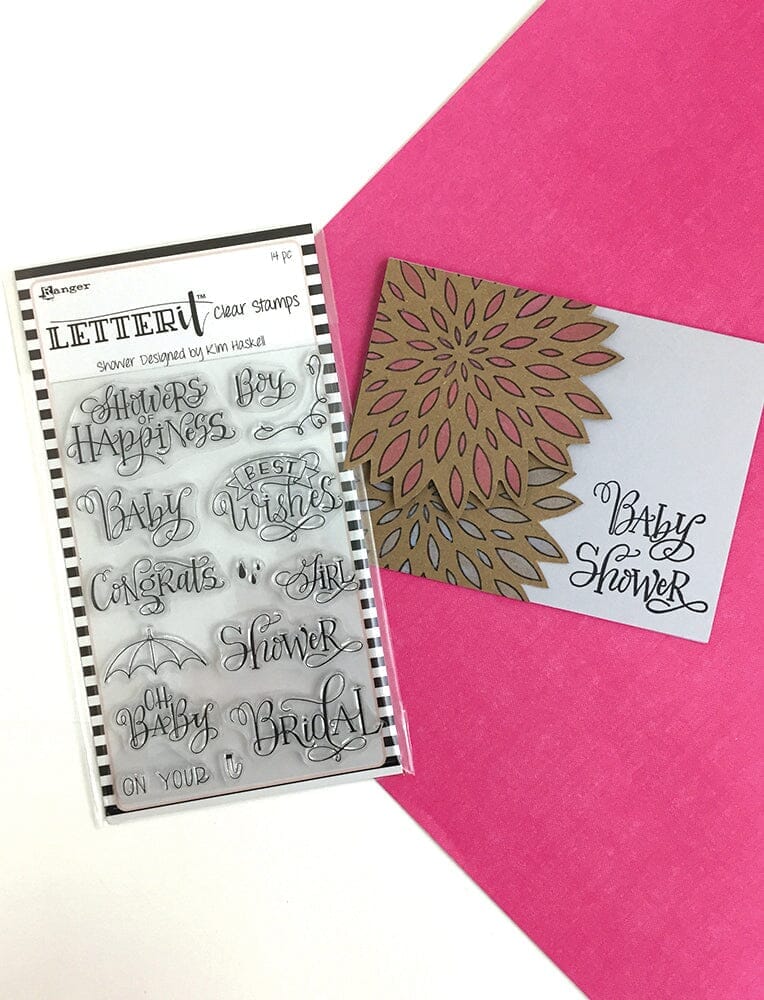 Ranger
14 pc
LETTERit™ Clear Stamps
Shower Designed by Kim Haskell
SHOWERS
OF
HAPPINESS
Boy
BABY
BEST
Wishes
CONGRATS
GIRL
SHOWER
OH
BABY
BRIDAL
ON YOUR
BABY
SHOWER